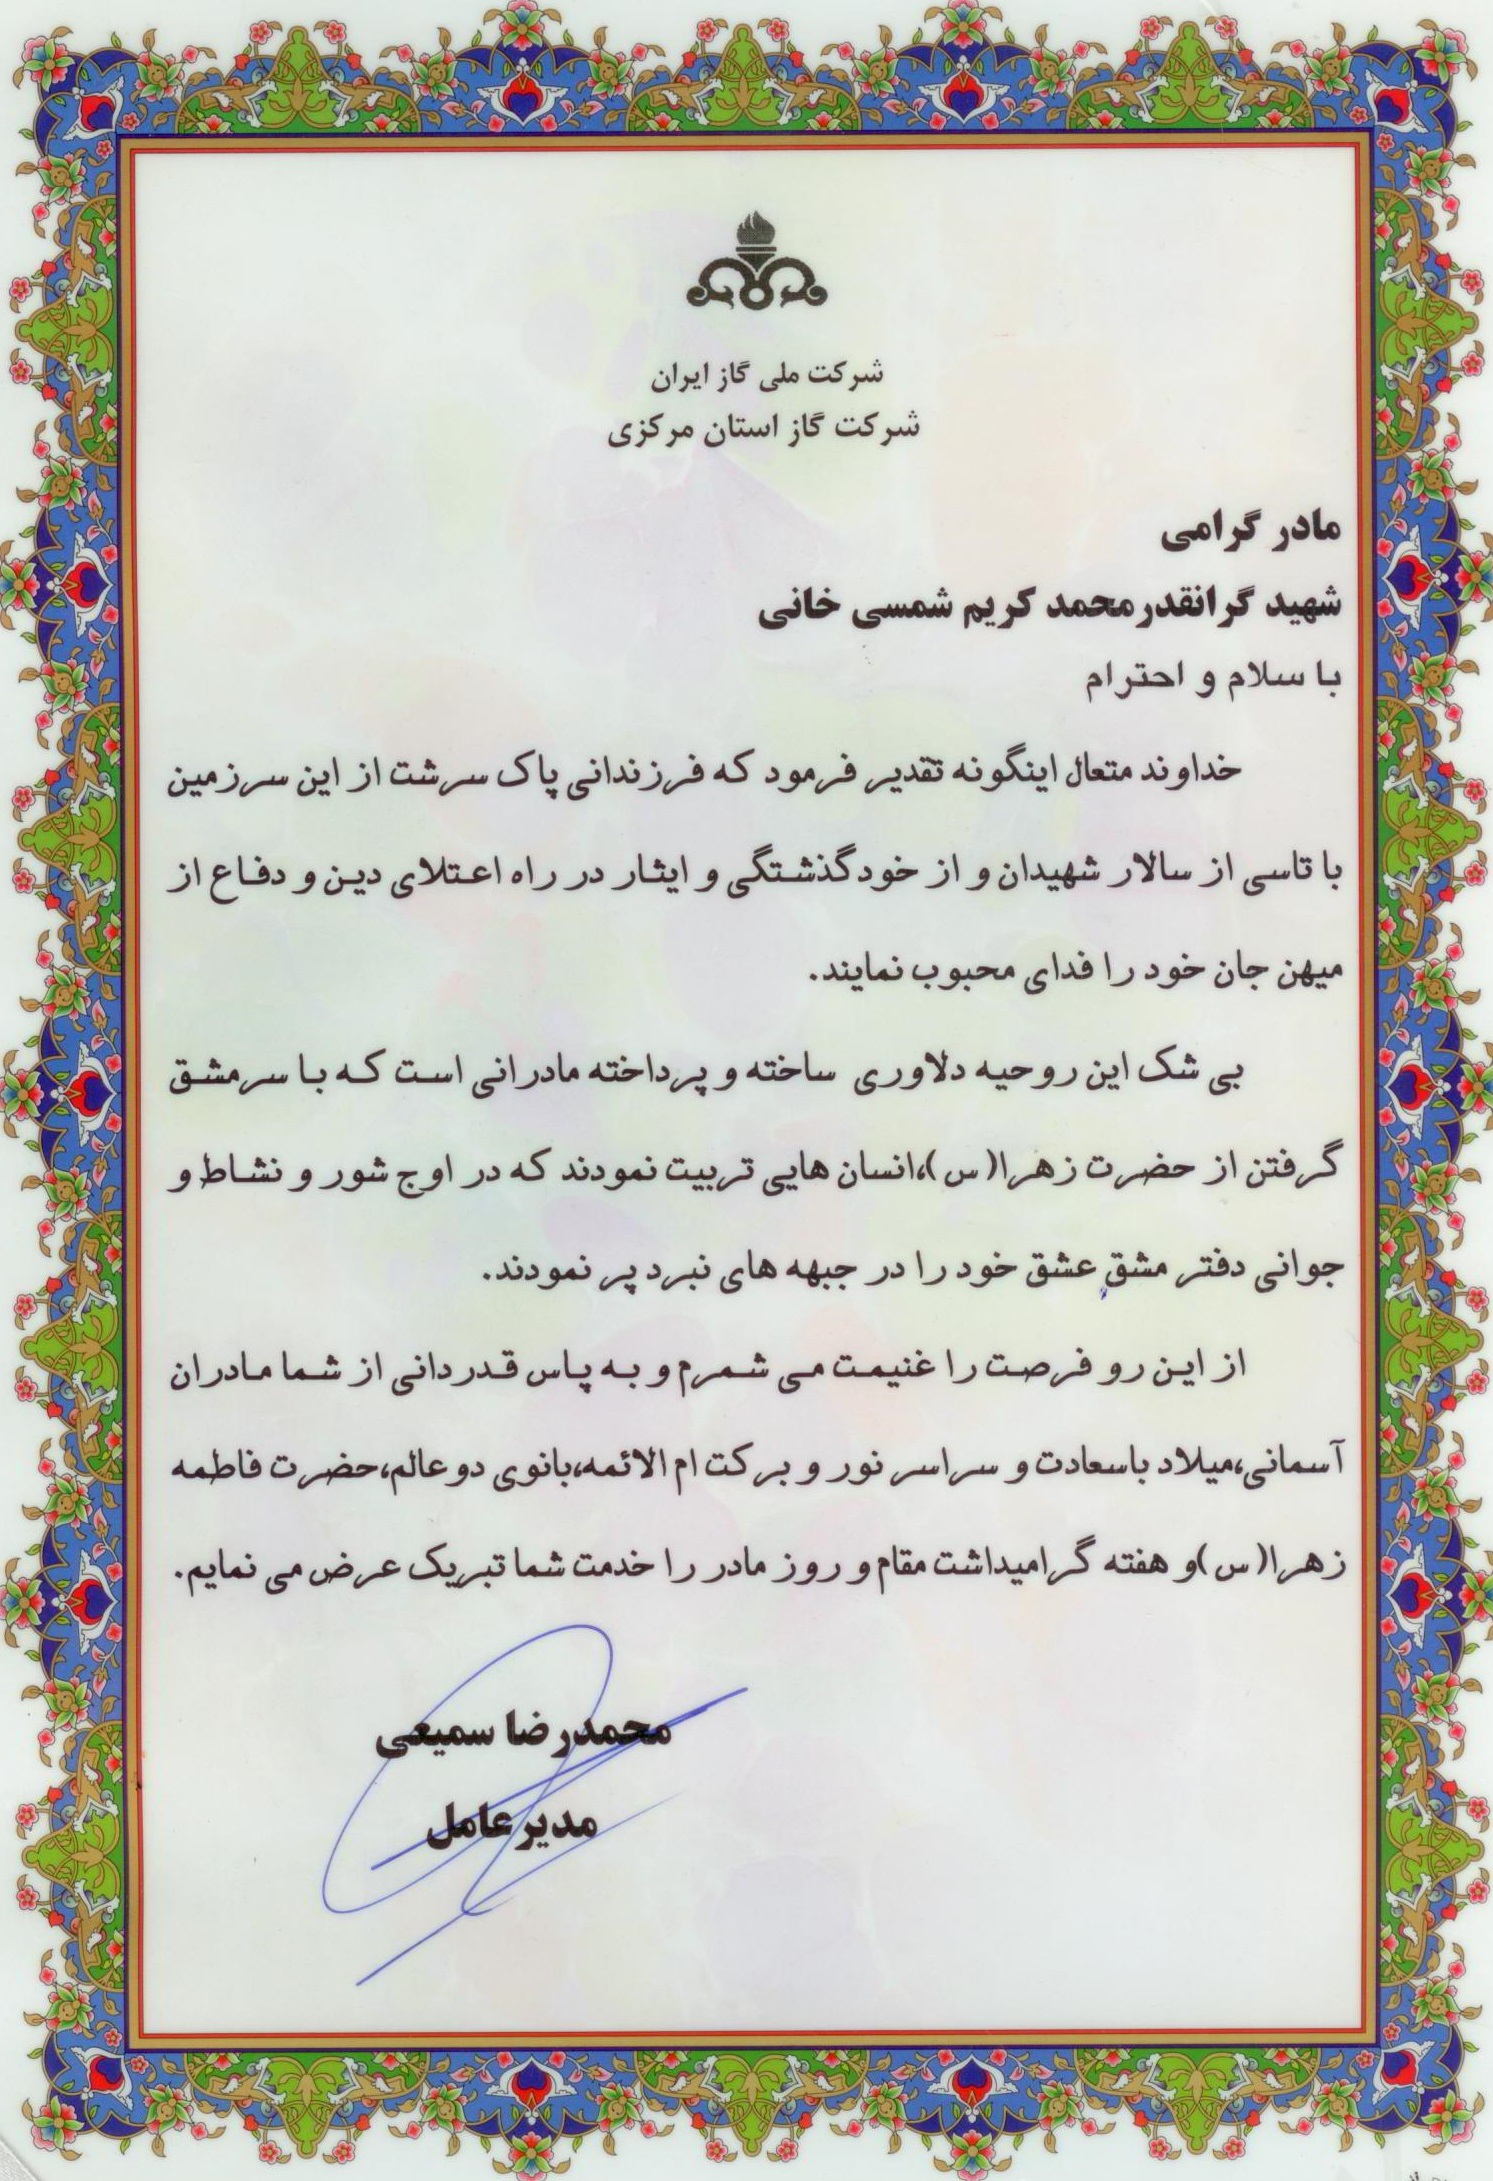 شرکت ملی گاز ایران
شرکت گاز استان مرکزی
مادر گرامی
شهید گرانقدر محمد کریم شمسی خانی
با سلام و احترام
خداوند متعال اینگونه تقدیر فرمود که فرزندانی پاک سرشت از این سرزمین
با تاسی از سالار شهیدان و از خودگذشتگی و ایثار در راه اعتلای دین و دفاع از
میهن جان خود را فدای محبوب نمایند.
بی شک این روحیه دلاوری ساخته و پرداخته مادرانی است که با سرمشق
گرفتن از حضرت زهرا(س)،انسان هایی تربیت نمودند که در اوج شور و نشاط و
جوانی دفتر مشق عشق خود را در جبهه های نبرد پر نمودند.
از این رو فرصت را غنیمت می شمرم و به پاس قدردانی از شما مادران
آسمانی،میلاد باسعادت و سراسر نور و برکت ام الائمه،بانوی دو عالم،حضرت فاطمه
زهرا(س)و هفته گرامیداشت مقام و روز مادر را خدمت شما تبریک عرض می نمایم.
محمدرضا سمیعی
مدیرعامل